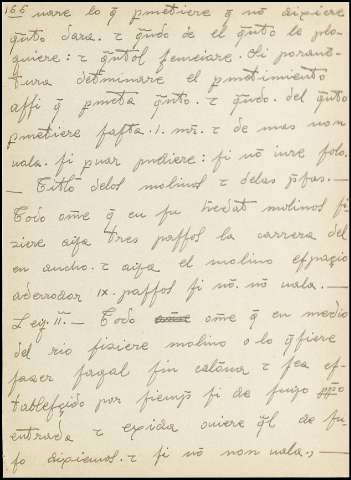 166 nare lo q̄ pmetiere q̄ nō dixiere
q̄nto dara. τ q̄ndo de el q̄nto lo plo-
guiere: τ q̄ntol semeiare. Si porauē-
tura detminare el pmetimiento
assi q̄ pmeta q̄nto. τ q̄ndo. del q̄nto
pmetiere fasta .i. mr̄. τ de mas non
uala. si puar pudiere: si nō iure solo.
— Titl̄o delos molinos τ delas p̄sas. —
Todo om̄e q̄ en su h̄edat molinos fi-
ziere aya tres passos la carrera del
en ancho. τ aya el molino espaçio
aderedor ix. passos si nō. nō uala. —
Ley. ii. — Todo om̄e q̄ en medio
del rio fiziere molino o lo q̄siere
fazer fagal sin calōna τ sea es-
tablesçido por siemp̄ si de fuero p̄p̄o
entrada τ exida ouiere q̄l de su-
so dixiemos. τ si nō non uala. —